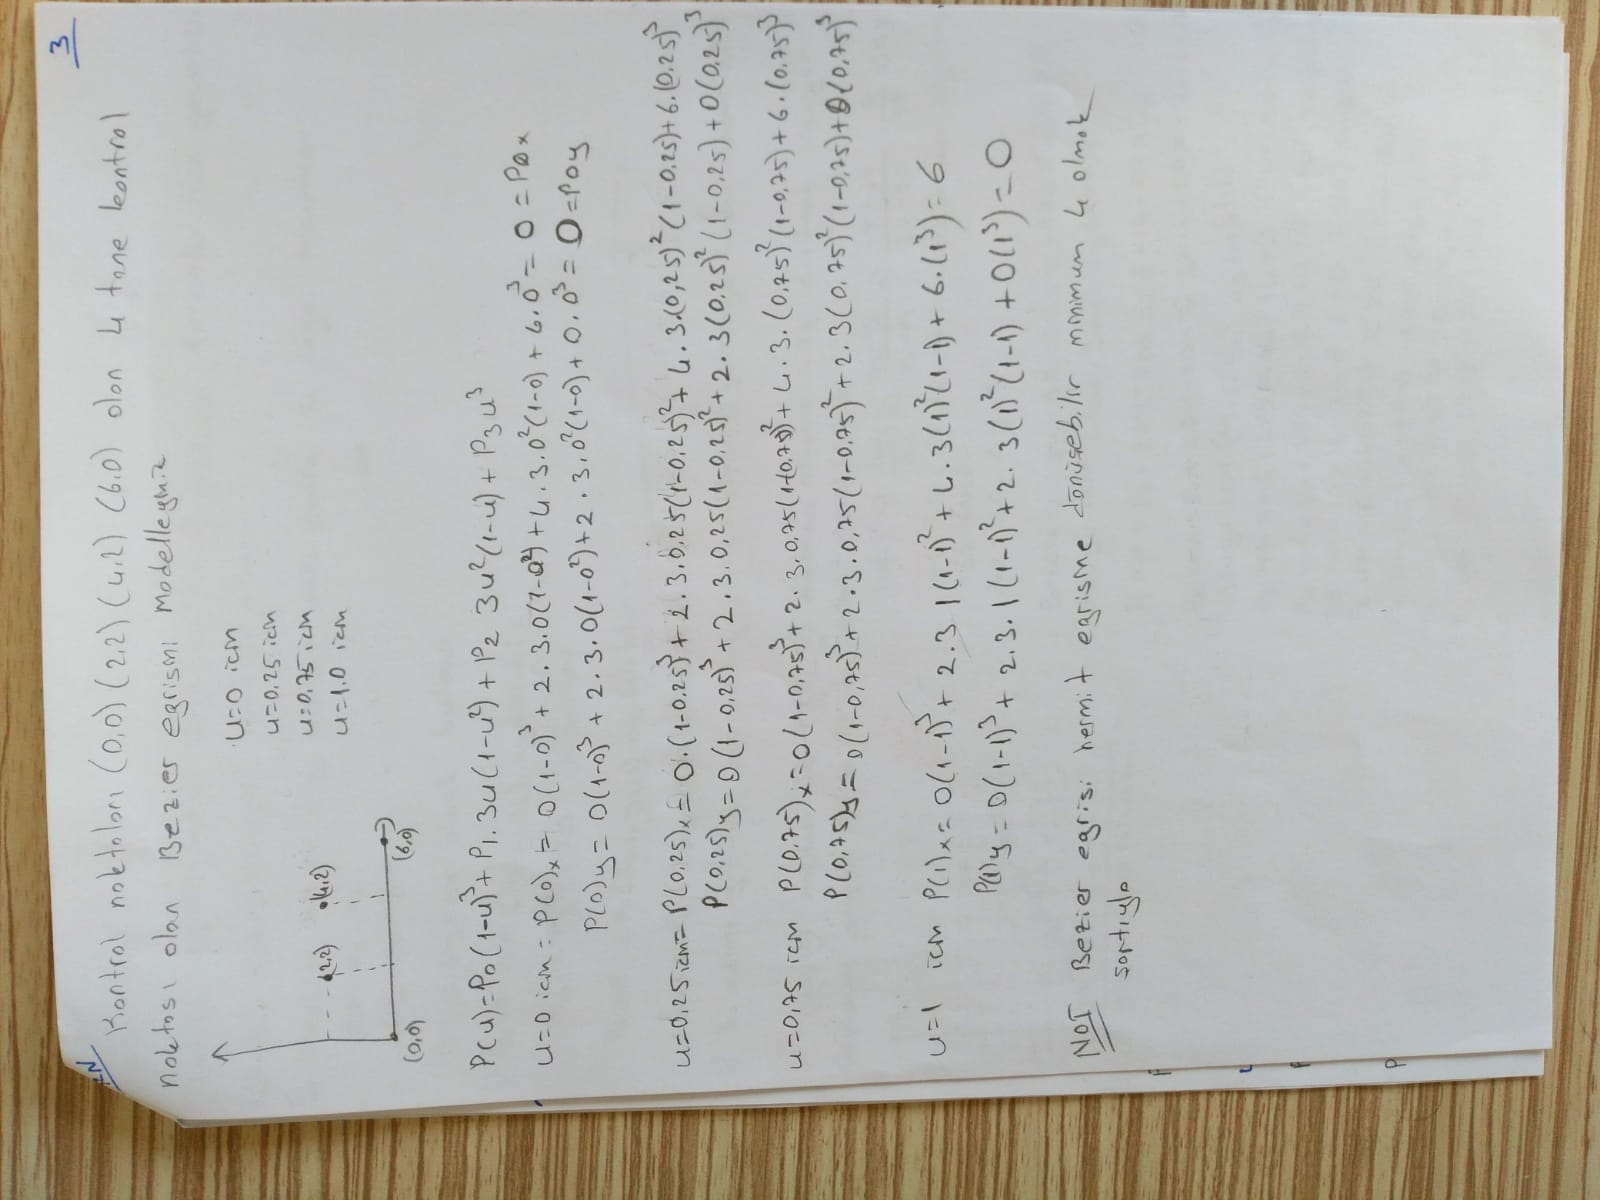 3
Kontrol noktaları (0,0) (2,2) (4,2) (6,0) olan 4 tane kontrol
noktası olan Bezier egrisini modelleyiniz
u=0 icin
u=0.25 icin
u=0.75 icin
u=1.0 icin
(2,2)
(4,2)
(0,0)
(6,0)
P(u)=P0(1-u)³+P1.3u(1-u²)+P2 3u²(1-u)+P3u³
u=0 icin = P(0)x = 0(1-0)³+2.3.0(1-0²)+4.3.0²(1-0)+6.0³=0=P0x
P(0)y = 0(1-0)³+2.3.0(1-0²)+2.3.0²(1-0)+0.0³=0=P0y
u=0,25 icin= P(0,25)x=0.(1-0,25)³+2.3.0,25(1-0,25)²+4.3.(0,25)²(1-0,25)+6.(0,25)³
P(0,25)y=0(1-0,25)³+2.3.0,25(1-0,25)²+2.3(0,25)²(1-0,25)+0(0,25)³
u=0,75 icin P(0,75)x=0(1-0,75)³+2.3.0,75(1-(0,75)²+4.3.(0,75)²(1-0,75)+6.(0,75)³
P(0,75)y=0(1-0,75)³+2.3.0,75(1-0,75)²+2.3(0,75)²(1-0,75)+0(0,75)³
u=1 icin P(1)x=0(1-1)³+2.3.1(1-1)²+4.3(1)²(1-1)+6.(1³)=6
P(1)y=0(1-1)³+2.3.1(1-1)²+2.3(1)²(1-1)+0(1³)=0
NOT Bezier egrisi hermit egrisine dönüsebilir minimum 4 olmak
sartıyla